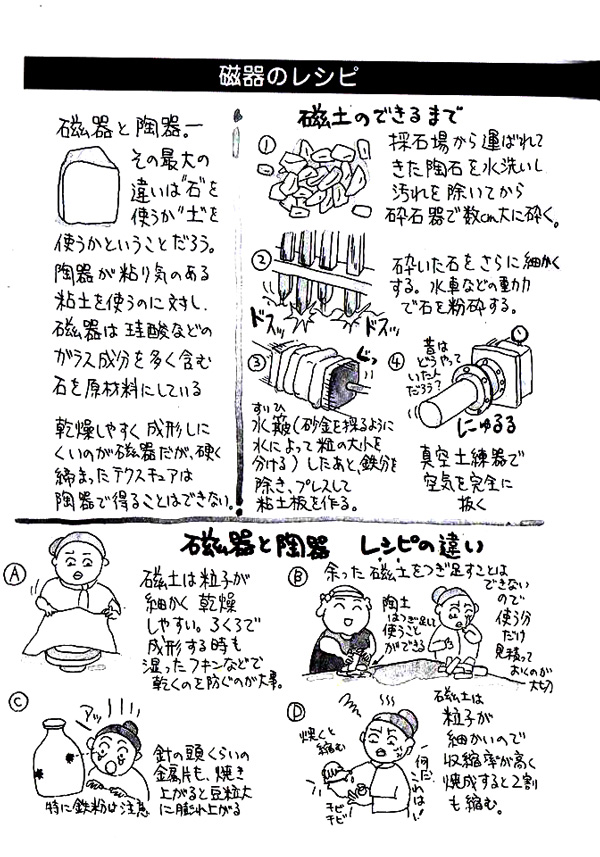 磁器のレシピ
磁器と陶器。ー
その最大の
違いは"石"を
使うか"土"を
使うかということだろう。
陶器が粘り気のある
粘土を使うのに対し、
磁器は珪酸などの
ガラス成分を多く含む
石を原材料にしている
乾燥しやすく成形しに
くいのが磁器だが、硬く
締まったテクスチュアは
陶器で得ることはできない。
磁土のできるまで
①
採石場から運ばれて
きた陶石を水洗いし
汚れを除いてから
砕石器で数cm大に砕く。
②
砕いた石をさらに細かく
する。水車などの動力
で石を粉砕する。
ドスッ
ドスッ
③
ぐっ
すいひ
水簸(砂金を採るように
水によって粒の大小を
分ける)したあと、鉄分を
除き、プレスして
粘土板を作る。
④
昔は
どうやって
いたん
だろう?
にゅるる
真空土練器で
空気を完全に
抜く
磁器と陶器 レシピの違い
A
磁土は粒子が
細かく乾燥
しやすい。ろくろで
成形する時も
湿ったフキンなどで
乾くのを防ぐのが大事。
B
余った磁土をつぎ足すことは
できない
ので
使う分
だけ
見積って
おくのが
大切
陶土
はつぎ足して
使うこと
ができる
C
アッ
針の頭くらいの
金属片も、焼き
上がると豆粒大
に膨れ上がる
特に鉄粉は注意
D
焼くと
縮む
チビ
チビ
何だ
これは!
磁土は
粒子が
細かいので
収縮率が高く
焼成すると2割
も縮む。